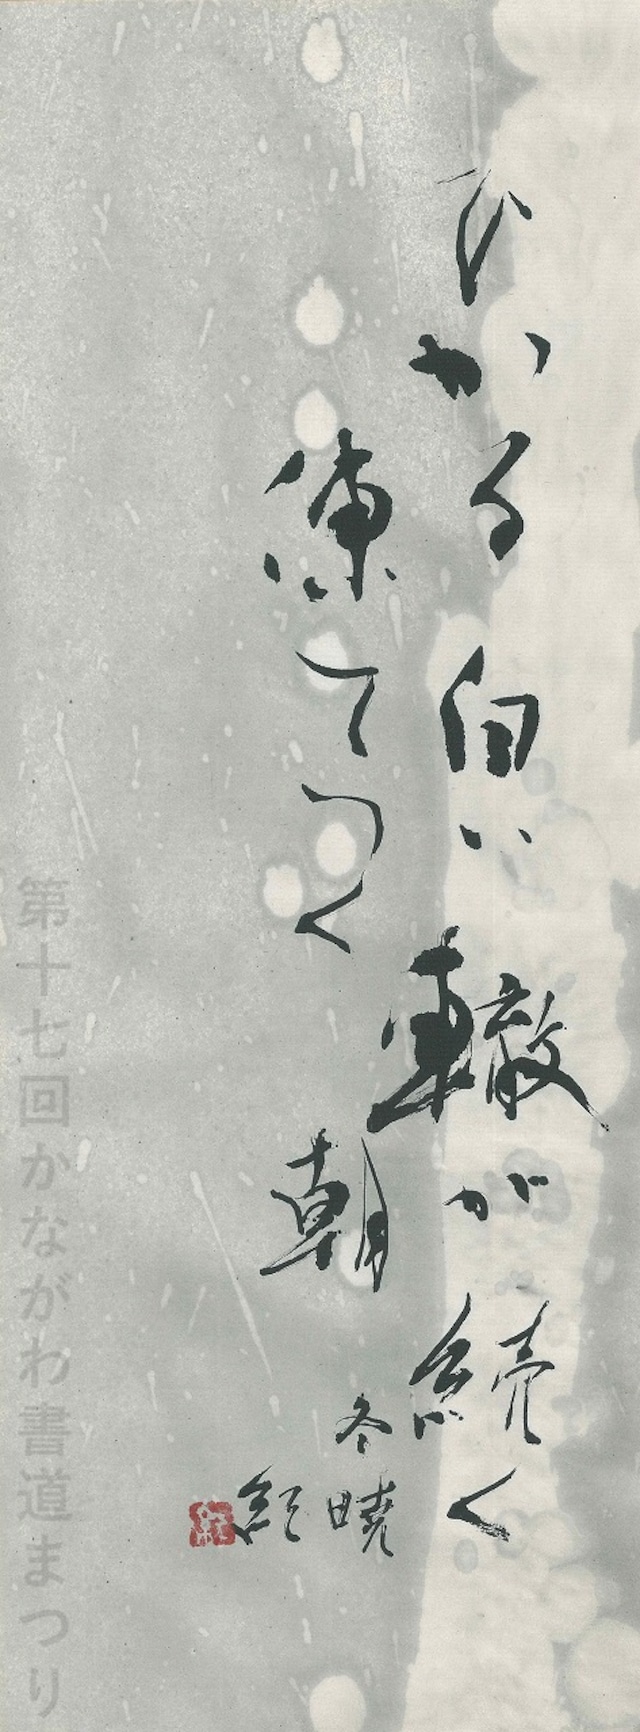 ひかる白い轍が続く
凍てつく朝
冬暁
第十七回かながわ書道まつり